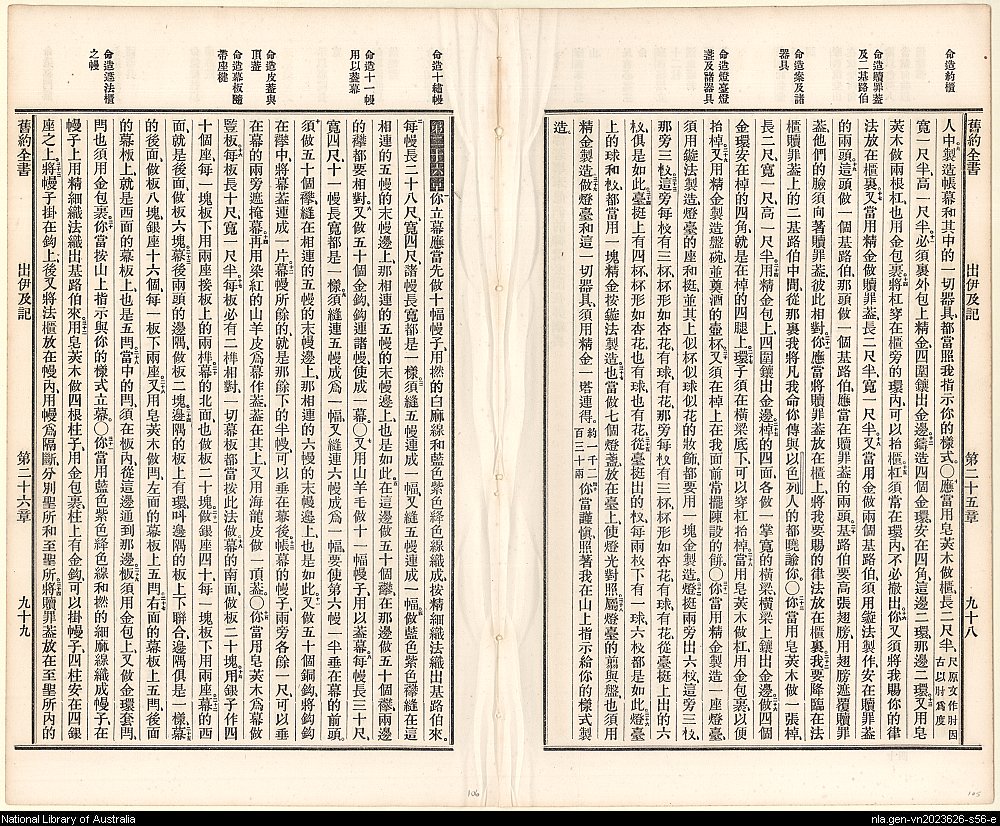 命造約櫃
命造贖罪蓋
及二基路伯
命造案及諸
器具
命造燈臺燈
盞及諸器具
舊約全書 出伊及記 第二十五章 九十八
人中製造帳幕和其中的一切器具、都當照我指示你的樣式。〇應當用皂莢木做櫃、長二尺半、尺原文作肘因古以肘爲度
寬一尺半、高一尺半、必須裏外包上精金、四圍鑲出金邊、鑄造四個金環安在四角、這邊二環、那邊二環、又用皂
莢木做兩根杠、也用金包裹、將杠穿在櫃旁的環內、可以抬櫃、杠須常在環內、不必撤出、你又須將我賜你的律
法放在櫃裏、又當用精金做贖罪蓋、長二尺半、寬一尺半、又當用金做兩個基路伯、須用鎚法製作、安在贖罪蓋
的兩頭、這頭做一個基路伯、那頭做一個基路伯、應當在贖罪蓋的兩頭、基路伯要高張翅膀、用翅膀遮覆贖罪
蓋、他們的臉須向著贖罪蓋、彼此相對、你應當將贖罪蓋放在櫃上、將我要賜的律法放在櫃裏、我要降臨在法
櫃贖罪蓋上的二基路伯中間、從那裏我將凡我命你傳與以色列人的都曉諭你。〇你當用皂莢木做一張棹、
長二尺、寬一尺、高一尺半、用精金包上、四圍鑲出金邊、棹的四面各做一掌寬的橫梁、橫梁上鑲出金邊、做四個
金環安在棹的四角、就是在棹的四腿上、環子須在橫梁底下、可以穿杠抬棹、當用皂莢木做杠、用金包裹、以便
抬棹、又用精金製造盤碗、並奠酒的壺杯、又須在棹上、在我面前常擺陳設的餅。〇你當用精金製造一座燈臺、
須用鎚法製造、燈臺的座和挺、並其上似杯似球似花的妝飾、都要用一塊金製造、燈挺兩旁出六杈、這旁三杈、
那旁三杈、這旁每杈有三杯、杯形如杏花、有球有花、那旁每杈有三杯、杯形如杏花、有球有花、從臺挺上出的六
杈、俱是如此、臺挺上有四杯、杯形如杏花、也有球也有花、從臺挺出的杈、每兩杈下有一球、六杈都是如此、燈臺
上的球和杈、都當用一塊精金按鎚法製造、也當做七個燈盞、放在臺上、使燈光對照、屬燈臺的剪與盤、也須用
精金製造、做燈臺和這一切器具、須用精金一㗳連得。約一千二百三十兩你當謹慎照著我在山上指示給你的樣式製
造。
命造十繡幔
命造十一幔
用以蓋幕
命造皮蓋與
頂蓋
命造幕板隨
帶座楗
命造遮法櫃
之幔
第二十六章 你立幕、應當先做十幅幔子、用撚的白麻線和藍色紫色絳色線織成、按精細織法織出基路伯來。
每幔長二十八尺、寬四尺、諸幔長寬都是一樣、須縫五幔連成一幅、又縫五幔連成一幅、做藍色紫色襻縫在這
相連的五幔的末幔邊上、那相連的五幔的末幔邊上、也是如此、在這邊做五十個襻、在那邊做五十個襻、兩邊
的襻都要相對、又做五十個金鈎、鈎連諸幔、使成一幕。〇又用山羊毛做十一幅幔子、用以蓋幕、每幔長三十尺、
寬四尺、十一幔長寬都是一樣、須縫連五幔成爲一幅、又縫連六幔成爲一幅、要使第六幔一半垂在幕的前頭、
須做五十個襻、縫在相連的五幔的末幔邊上、那相連的六幔的末幔邊上也是如此、又做五十個銅鈎、將鈎鈎
在襻中、將幕蓋連成一片、幕幔所餘的、就是那餘下的半幔、可以垂在幕後、帳幕的幔子、兩旁各餘一尺、可以垂
在幕的兩旁遮掩幕、再用染紅的山羊皮爲幕作蓋、蓋在其上、又用海龍皮做一頂蓋〇你當用皂莢木爲幕做
豎板、每板長十尺、寬一尺半、每板必有二榫相對、一切幕板都當按此法做、幕的南面做板二十塊、用銀子作四
十個座、每一塊板下用兩座接板上的兩榫、幕的北面、也做板二十塊、做銀座四十、每一塊板下用兩座、幕的西
面、就是後面、做板六塊、幕後兩頭的邊隅、做板二塊、邊隅的板上有環、叫邊隅的板上下聯合、邊隅俱是一樣、幕
的後面、做板八塊、銀座十六個、每一板下兩座、又用皂莢木做閂、左面的幕板上五閂、右面的幕板上五閂、後面
的幕板上、就是西面的幕板上、也是五閂、當中的閂、須在板內、從這邊通到那邊、板須用金包上、又做金環套閂、
閂也須用金包裹、你當按山上指示與你的樣式立幕。〇你當用藍色紫色絳色線和撚的細麻線織成幔子、在
幔子上用精細織法織出基路伯來、用皂莢木做四根柱子、用金包裹、柱上有金鈎、可以掛幔子、四柱安在四銀
座之上、將幔子掛在鈎上、後又將法櫃放在幔內、用幔爲隔斷、分別聖所和至聖所、將贖罪蓋放在至聖所內的
舊約全書 出伊及記 第二十六章 九十九
106
105
National Library of Australia
nla.gen-vn2023626-s56-e